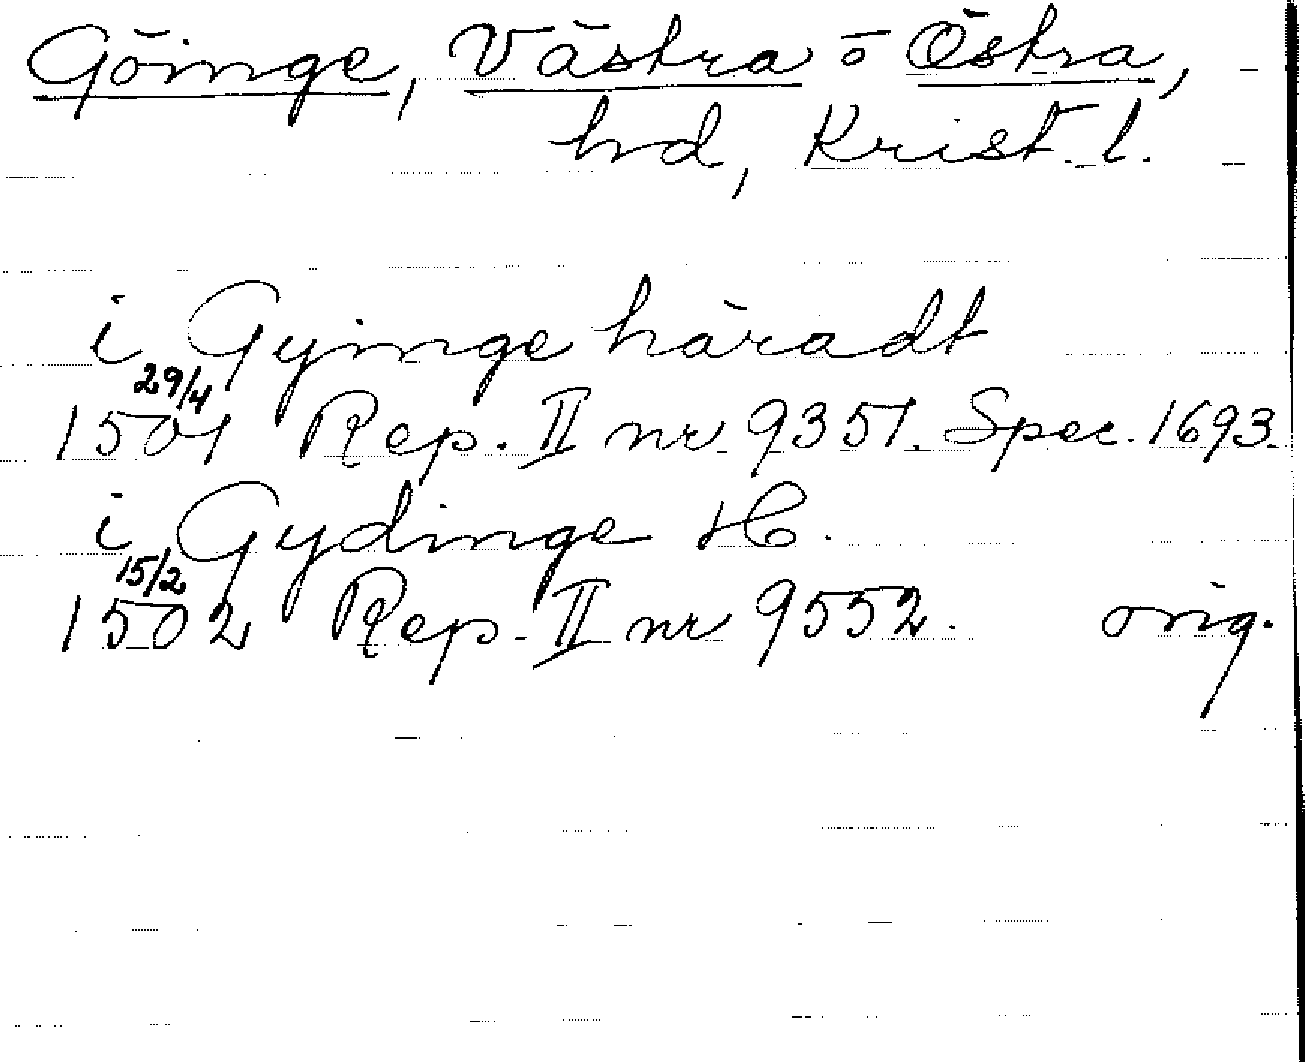 Göinge, Västra o Östra,
hd, Krist. l.
i Gyinge häradt
29/4
1501 Rep. II nr 9351. Spec. 1693.
i Gydinge H.
15/2
1502 Rep. II nr 9552. orig.